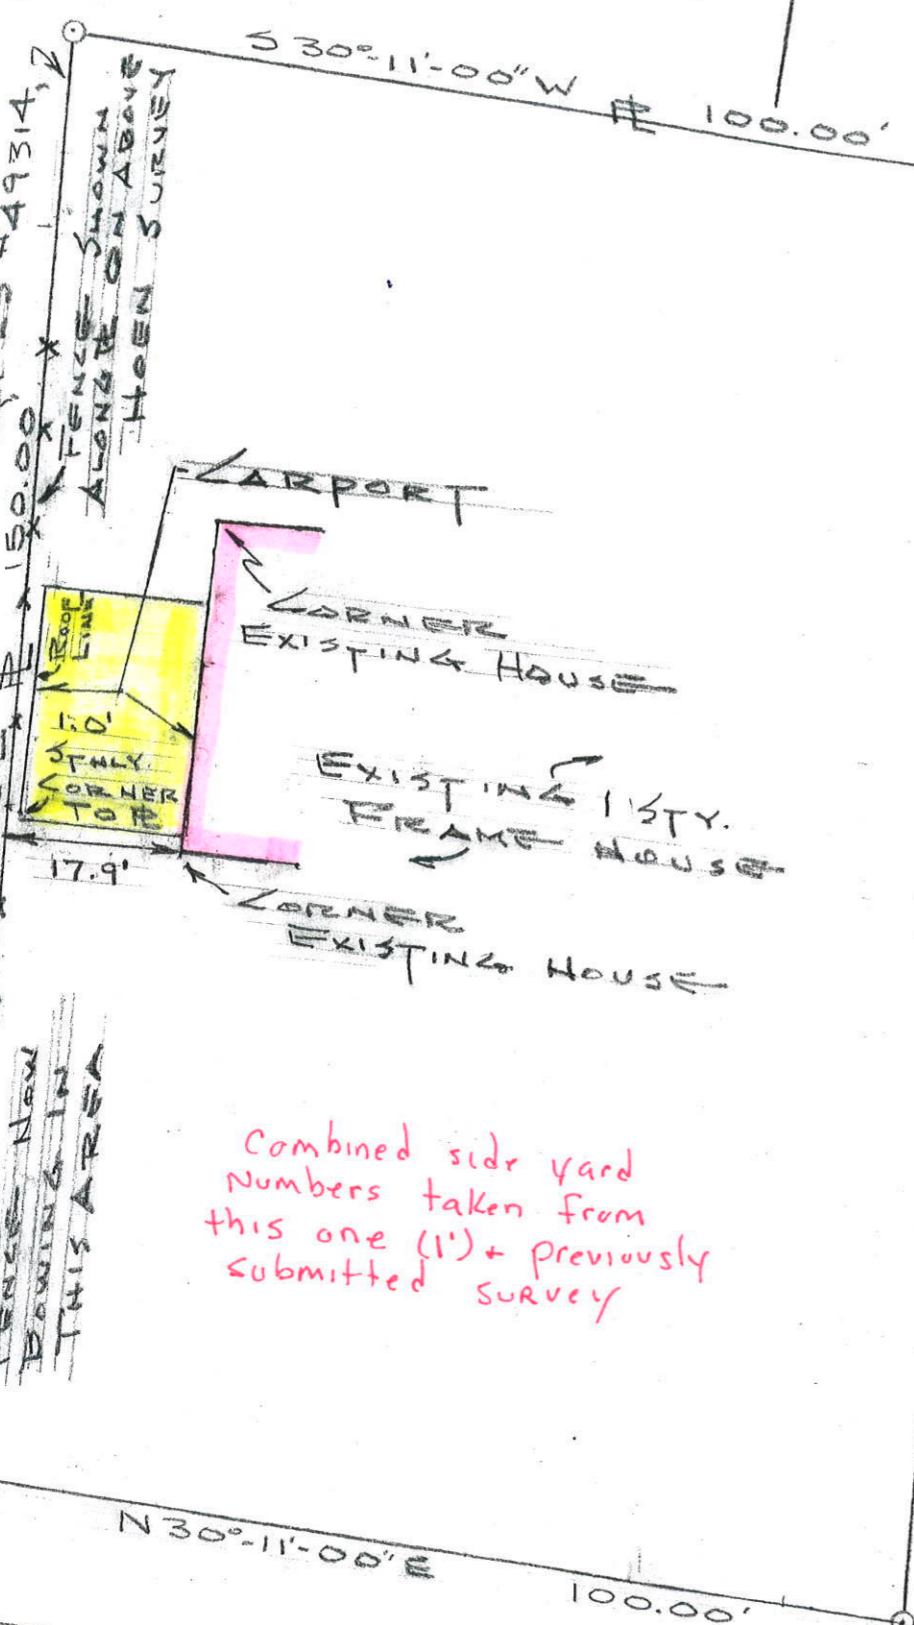 S 30°-11'-00" W ⅊ 100.00'
49314,
FENCE SHOWN
ALONG ⅊ ON ABOVE
HOEN SURVEY
150.00
CARPORT
CORNER
EXISTING HOUSE
ROOF
LINE
1.0'
STHLY.
CORNER
TO ⅊
⅊
EXISTING 1 STY.
FRAME HOUSE
17.9'
CORNER
EXISTING HOUSE
NOW
BOWING IN
THIS AREA
Combined side yard
Numbers taken from
this one (1') + previously
submitted survey
N 30°-11'-00" E
100.00'